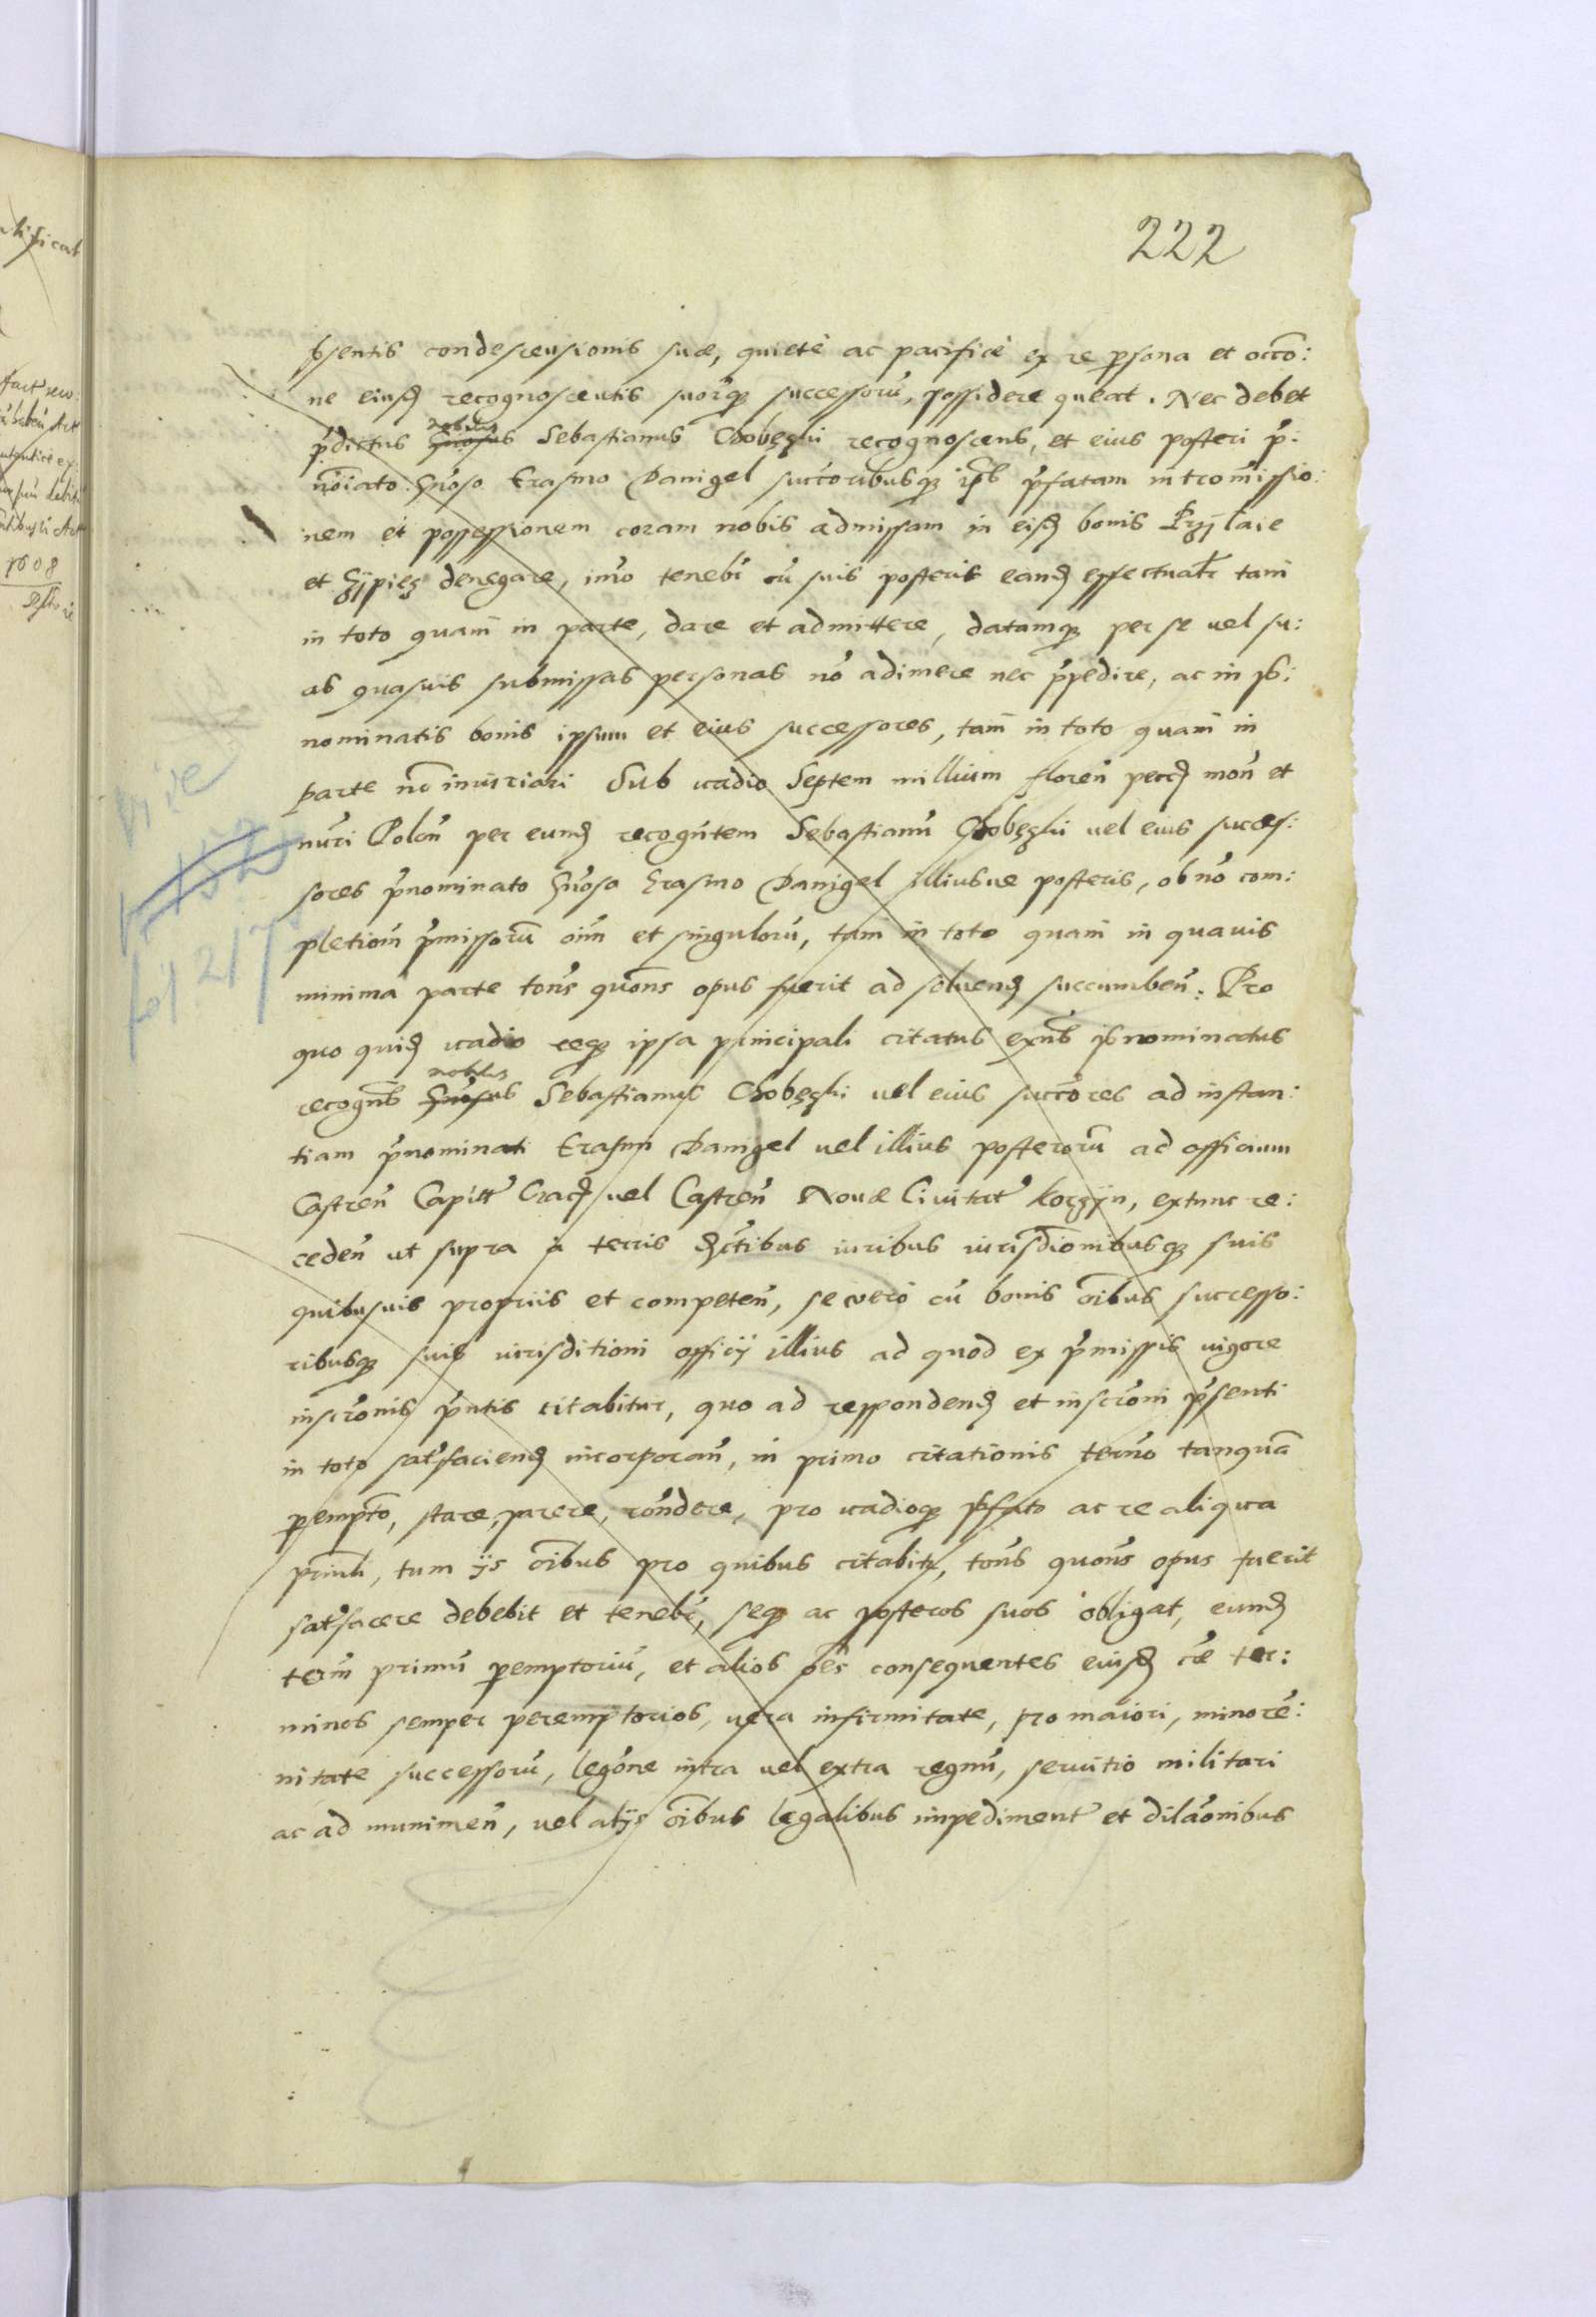 222
psentis condescensionis suæ, quietè ac pacificè ex re persona et occõ:
ne eiusd recognoscentis suorq successorũ, possidere queat. Nec debet
nobilis
p̃dictus Gñosus Sebastianus Chobęzki recognoscens, et eius posteri p̃:
nõiato Gñoso Erasmo Danigel succoribusq ips p̃fatam intromissio:
nem et possessionem coram nobis admissam in eisd bonis
et denegare, imo tenebr cũ suis posteris eand effectualr tam
in toto quam in parte, dare et admittere, datamq per se vel su:
as quasvis submissas personas nõ adimere nec p̃pedire, ac in ps:
nominatis bonis ipsum et eius successores, tam in toto quam in
parte nõ iniuriari Sub vadio Septem millium floreñ pecc moñ et
nũri Poloñ per eumd recogñtem Sebastianũ Chobęzki vel eius succes:
sores p̃nominato Gñoso Erasmo Danigel illiusve posteris, ob nõ com:
pletioñ p̃missorũ oĩm et singulorũ, tam in toto quam in quavis
minima parte tõns quõns opus fuerit ad solvend succumbeñ. Pro
quo quid vadio reqz ipsa principali citatus exñs psnominatus
nobilis
recogñs Gñosus Sebastianus Chobęzki vel eius succõres ad instan:
tiam p̃nominati Erasmi Danigel vel illius posterorũ ad officium
Castreñ Capitt Crac vel Castreñ Novæ Civitat Korzÿn, extunc re:
cedeñ ut supra à terris dictibus iuribus iurisdionibusq suis
quibusvis propriis et competeñ, se verò cũ bonis õibus successo:
ribusq suis iurisditioni officÿ illius ad quod ex p̃missis vigore
inscrõnis p̃ntis citabitur, quo ad respondend et inscrõni p̃senti
in toto satsfaciend incorporañ, in primo citationis termo tanquã
pemptõ, stare, parere, rõndere, pro vadioq psfato ac re aliqua
prinli, tum ÿs õibus pro quibus citabitr, tõns quõns opus fuerit
satsfacere debebit et tenebr, seq ac posteros suos obligat, eumd
term primũ pemptoriũ, et alios oẽs consequentes eiusd cæ ter:
minos semper peremptorios, vera infirmitate, pro maiori, minorẽ:
nitate successorũ, legõne intra vel extra regnũ, servitio militari
ac ad munimeñ, vel alÿs õibus legalibus impediment et dilaõnibus
fol 217
1608